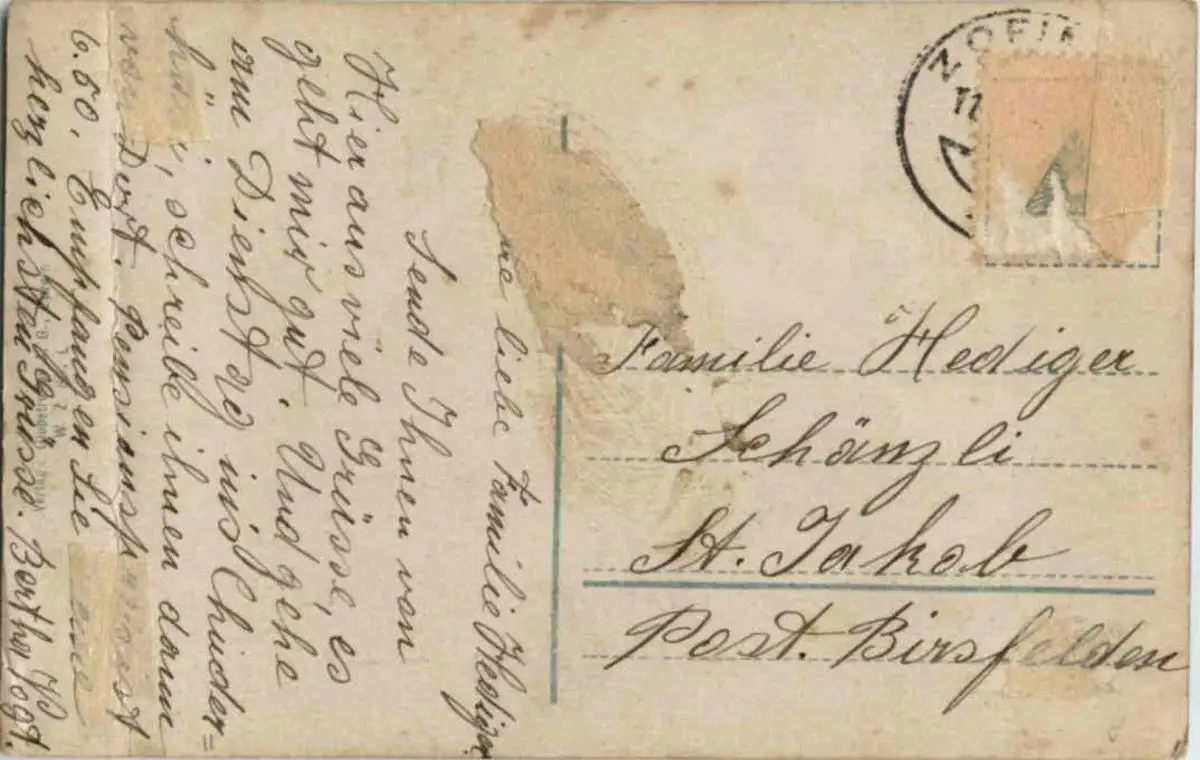 ZOFIN
liebe Familie Hediger,
Sende Ihnen von
Hier aus viele Grüsse, es
geht mir gut. Und gehe
am Dienstag ins Chuder=
hüsi, schreibe ihnen dann
von Dort. Pensionsp ist
6.50, Empfangen Sie
herzlichsten Grüsse. Bertha Vogt.
Familie Hediger
Schänzli
St. Jakob
Post. Birsfelden